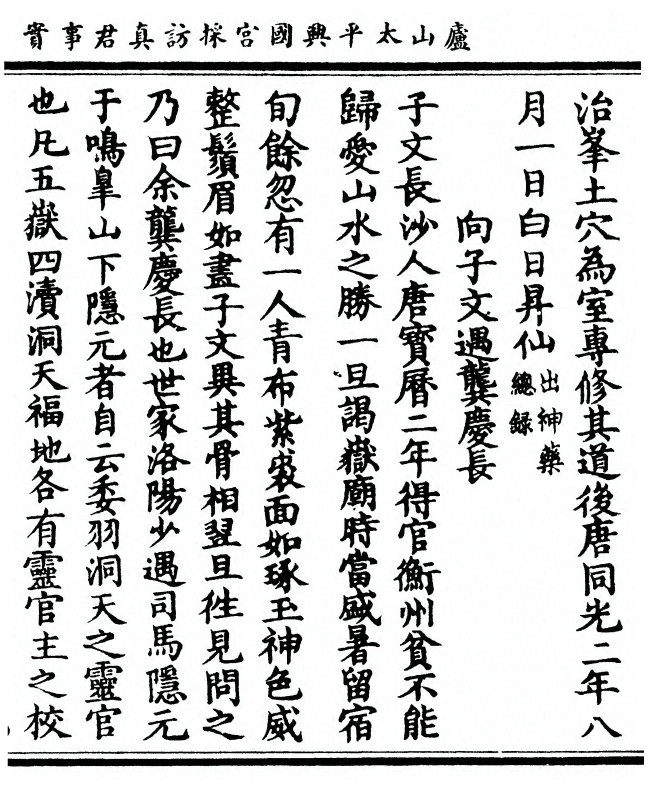 廬山太平興國宮採訪真君事實
治峯土穴為室專修其道後唐同光二年八
月一日白日昇仙出神藥總錄
向子文遇龔慶長
子文長沙人唐寳曆二年得官衡州貧不能
歸愛山水之勝一旦謁嶽廟時當盛暑留宿
旬餘忽有一人青布紫裘面如琢玉神色威
整鬚眉如畫子文異其骨相翌旦徃見問之
乃曰余龔慶長也世家洛陽少遇司馬隱元
于鳴臯山下隱元者自云委羽洞天之靈官
也凡五嶽四瀆洞天福地各有靈官主之校